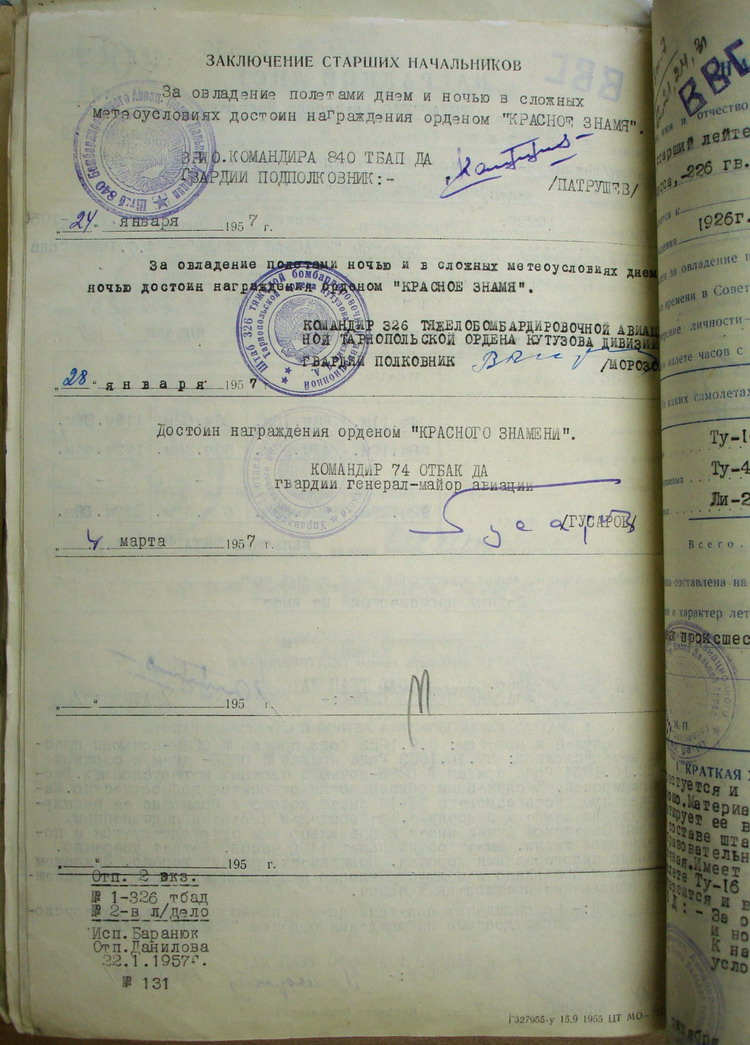 ЗАКЛЮЧЕНИЕ СТАРШИХ НАЧАЛЬНИКОВ
За овладение полетами днем и ночью в сложных
метеоусловиях достоин награждения орденом "КРАСНОЕ ЗНАМЯ".
ВРИО.КОМАНДИРА 840 ТБАП ДА
ГВАРДИИ ПОДПОЛКОВНИК:-
/ПАТРУШЕВ/
"24" января 1957 г.
За овладение полетами ночью и в сложных метеоусловиях днем
ночью достоин награждения орденом "КРАСНОЕ ЗНАМЯ".
КОМАНДИР 326 ТЯЖЕЛОБОМБАРДИРОВОЧНОЙ АВИАЦ
НОЙ ТАРНОПОЛЬСКОЙ ОРДЕНА КУТУЗОВА ДИВИЗИИ
ГВАРДИИ ПОЛКОВНИК /МОРОЗО
"28" января 1957 г.
Достоин награждения орденом "КРАСНОГО ЗНАМЕНИ".
КОМАНДИР 74 ОТБАК ДА
гвардии генерал-майор авиации
/ГУСАРОВ/
"4 марта 1957 г.
"__"__ 195 г.
"__"__ 195 г.
Отп. 2 экз.
№ 1-326 тбад
№ 2-в л/дело
Исп.Баранюк
Отп.Данилова
22.1.1957г.
№ 131
Г327955-у 15.9 1955 ЦТ МО
ВВС
и отчество
старший лейте
226 гв.
1926г.
за овладение п
времени в Совет
личности-
налете часов с
каких самолетах
Ту-1
Ту-4
Ли-2
Всего.
составлена на
и характер лет
происшес
М.П.
КРАТКАЯ
Материа
ее в
составе шта
Имеет
Ту-16
и в
- За о
и но
К на
усло